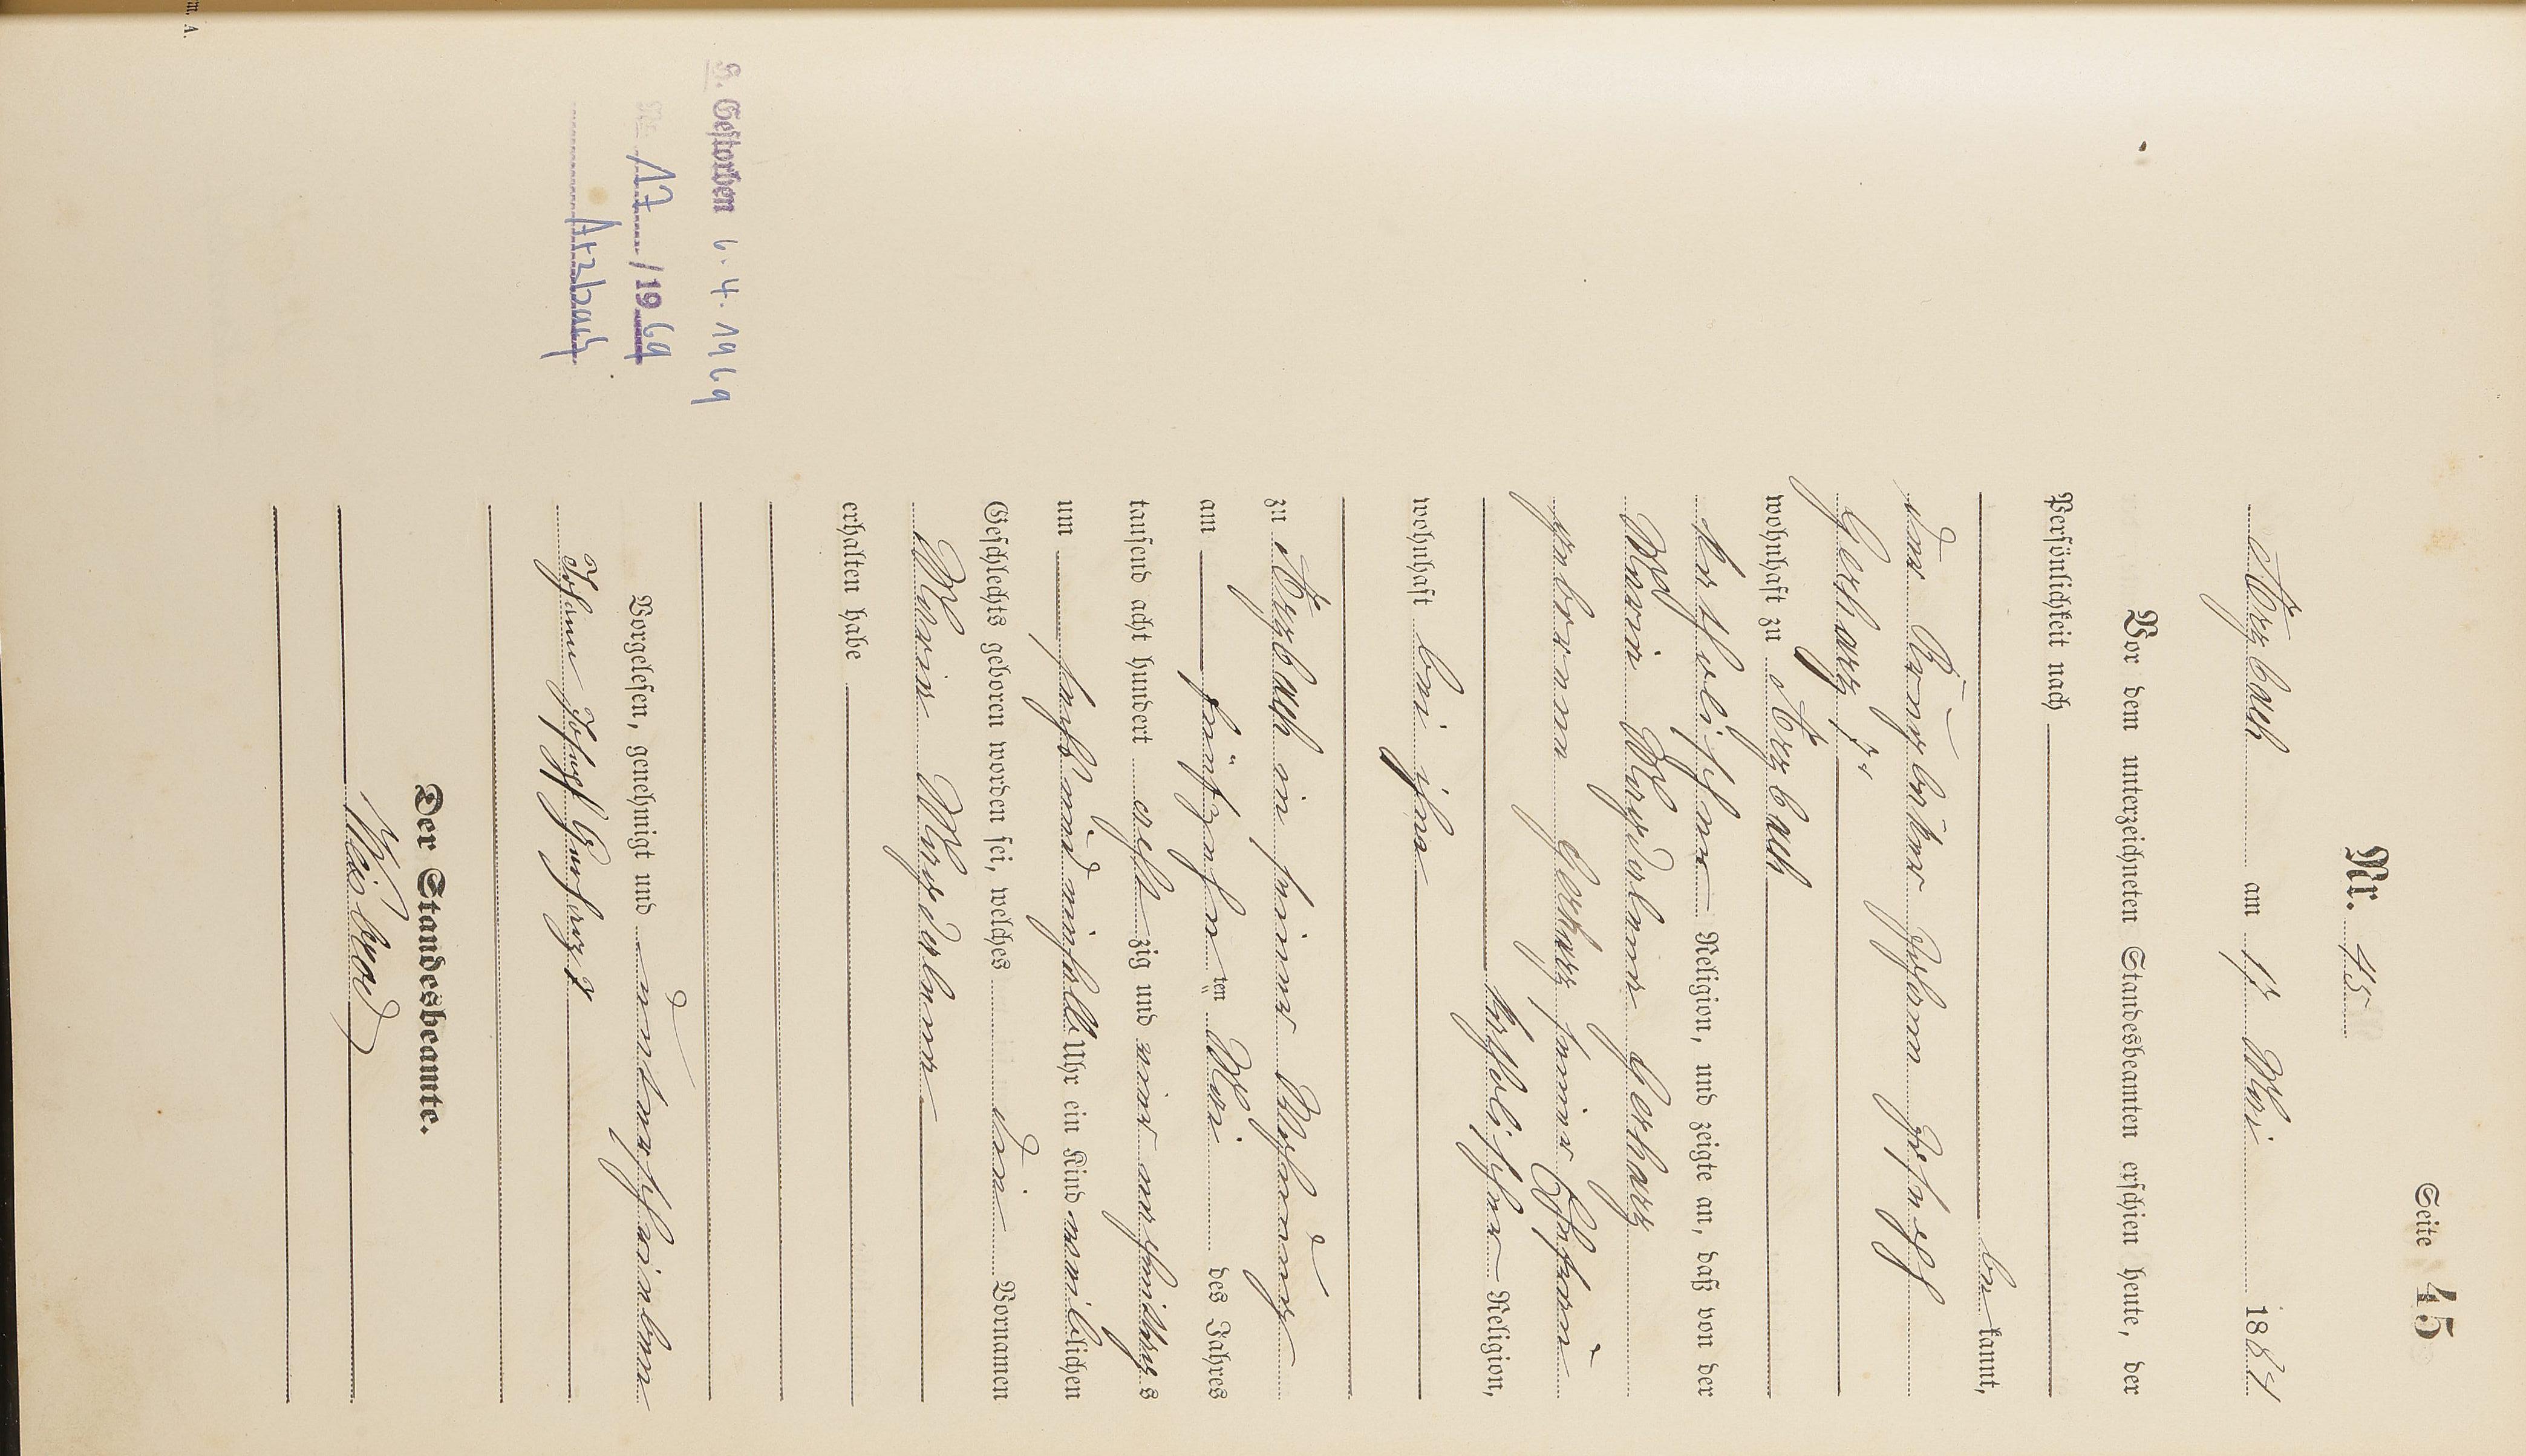 Seite 45
Nr. 45
Arzbach am 17 Mai 1884
Vor dem unterzeichneten Standesbeamten erschien heute, der
Persönlichkeit nach
bekannt,
der Tagelöhner Johann Joseph
Gerharz
wohnhaft zu Arzbach
katholischer Religion, und zeigte an, daß von der
Maria Magdalena Gerharz
geborenen Gerharz seiner Ehefrau
katholischer Religion,
wohnhaft bei ihm
zu Arzbach in seiner Wohnung
am fünfzehnten Mai des Jahres
tausend acht hundert achtzig und vier vormittags
um fünf und einhalb Uhr ein Kind weiblichen
Geschlechts geboren worden sei, welches die Vornamen
Maria Magdalena
erhalten habe
Vorgelesen, genehmigt und unterschrieben
Johann Joseph Gerharz
Der Standesbeamte.
H. Gestorben 6. 4. 1969
Nr. 17/1969
Arzbach
m. A.